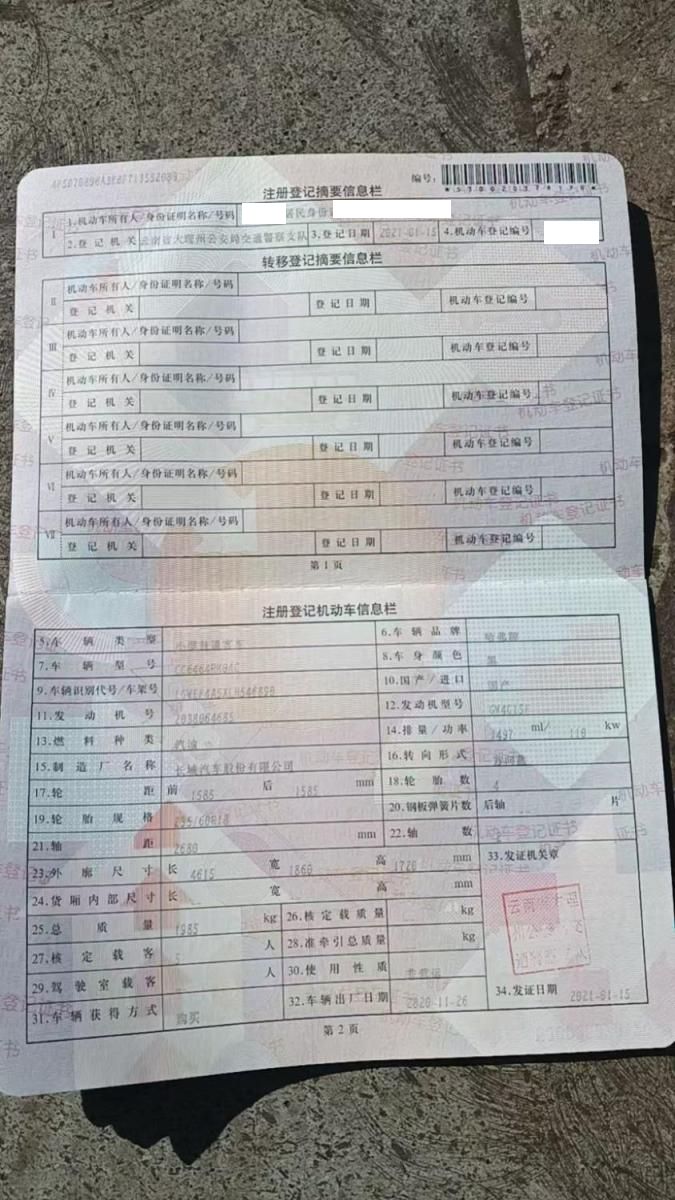 编号:
注册登记摘要信息栏
I 1.机动车所有人/身份证明名称/号码 居民身份
2.登记机关 云南省大理州公安局交通警察支队 3.登记日期 2021-01-15 4.机动车登记编号
转移登记摘要信息栏
II 机动车所有人/身份证明名称/号码
登记机关 登记日期 机动车登记编号
III 机动车所有人/身份证明名称/号码
登记机关 登记日期 机动车登记编号
IV 机动车所有人/身份证明名称/号码
登记机关 登记日期 机动车登记编号
V 机动车所有人/身份证明名称/号码
登记机关 登记日期 机动车登记编号
VI 机动车所有人/身份证明名称/号码
登记机关 登记日期 机动车登记编号
VII 机动车所有人/身份证明名称/号码
登记机关 登记日期 机动车登记编号
第1页
注册登记机动车信息栏
5.车辆类型 小型普通客车 6.车辆品牌 哈弗牌
7.车辆型号 8.车身颜色 黑
9.车辆识别代号/车架号 10.国产/进口 国产
11.发动机号 2038064685 12.发动机型号 GW4G15F
13.燃料种类 汽油 14.排量/功率 1497 ml/ 110 kw
15.制造厂名称 长城汽车股份有限公司 16.转向形式
17.轮距 前 1585 后 1585 mm 18.轮胎数 4
19.轮胎规格 20.钢板弹簧片数 后轴 片
21.轴距 2680 mm 22.轴数
23.外廓尺寸 长 4615 宽 1860 高 1720 mm 33.发证机关章
24.货厢内部尺寸 长 宽 高 mm
25.总质量 1985 kg 26.核定载质量 kg
27.核定载客 5 人 28.准牵引总质量 kg
29.驾驶室载客 人 30.使用性质 非营运
31.车辆获得方式 购买 32.车辆出厂日期 2020-11-26 34.发证日期 2021-01-15
第2页